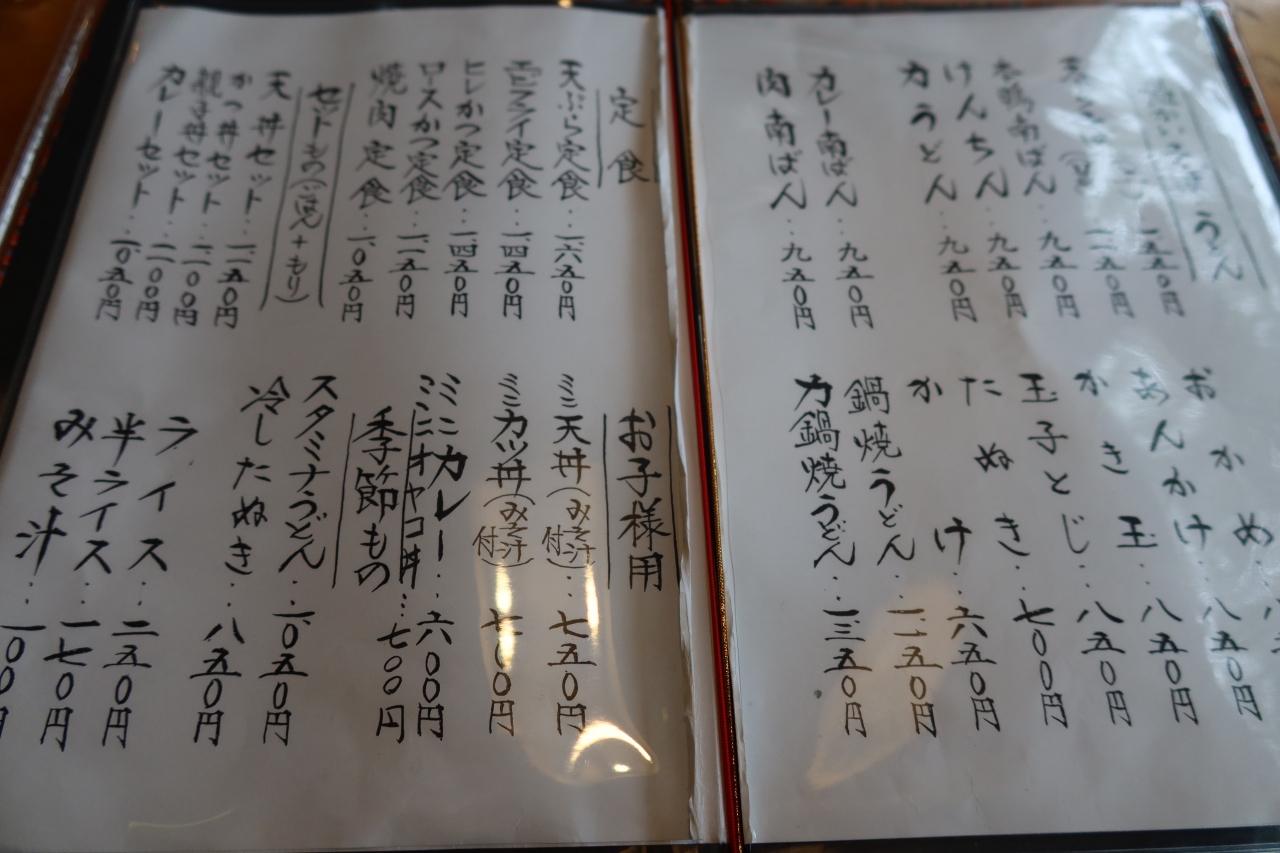 うどん
南ばん‥九五〇円
けんちん‥九五〇円
力うどん‥九五〇円
カレー南ばん‥九五〇円
肉南ばん‥九五〇円
おかめ
あんかけ‥八五〇円
かき玉‥八五〇円
玉子とじ‥八五〇円
たぬき‥七〇〇円
かけ‥六五〇円
鍋焼うどん‥一.一五〇円
力鍋焼うどん‥一.三五〇円
定食
天ぷら定食‥一.六五〇円
エビフライ定食‥一.四五〇円
ヒレかつ定食‥一.四五〇円
ロースかつ定食‥一.一五〇円
焼肉定食‥一.〇五〇円
セットもの(ごはん+もり)
天丼セット‥一.一五〇円
かつ丼セット‥一.一〇〇円
親子丼セット‥一.一〇〇円
カレーセット‥一.〇五〇円
お子様用
ミニ天丼(みそ汁付)‥七五〇円
ミニカツ丼(みそ汁付)‥七〇〇円
ミニカレー‥六〇〇円
ミニオヤコ丼…七〇〇円
季節もの
スタミナうどん‥一.〇五〇円
冷したぬき‥八五〇円
ライス‥二五〇円
半ライス‥一七〇円
みそ汁‥一〇〇円